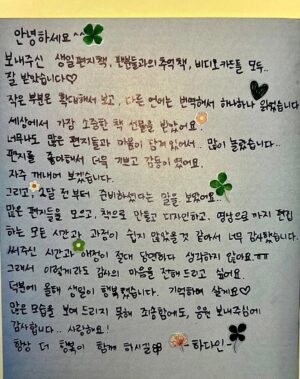 안녕하세요^^
보내주신 생일편지책, 팬분들과의 추억책, 비디오카드들 모두..
잘 받았습니다♡
작은 부분은 확대해서 보고, 다른 언어는 번역해서 하나하나 읽었습니다
세상에서 가장 소중한 책 선물을 받았어요.
너무나도 많은 편지들과 마음이 담겨 있어서.. 많이 놀랐습니다..
편지를 좋아해서 더욱 기쁘고 감동이 였어요.
자주 꺼내어 보겠습니다.
그리고, 2달 전부터 준비하셨다는 말을 보았어요..
많은 편지들을 모으고, 책으로 만들고 디자인하고, 영상으로 까지 편집
하는 모든 시간과 과정이 쉽지 않았을 것 같아서 너무 감사했습니다.
써주신 시간과 애정이 절대 당연하다 생각하지 않아요.ㅠㅠ
그래서 이렇게라도 감사의 마음을 전해 드리고 싶어요.
덕분에 올해 생일이 행복했겠습니다. 기억하며 살게요♡
많은 모습을 보여 드리지 못해 죄송함에도, 응원 보내주심에
감사합니다.. 사랑해요!
항상 더 행복이 함께 하시길 -하다인-